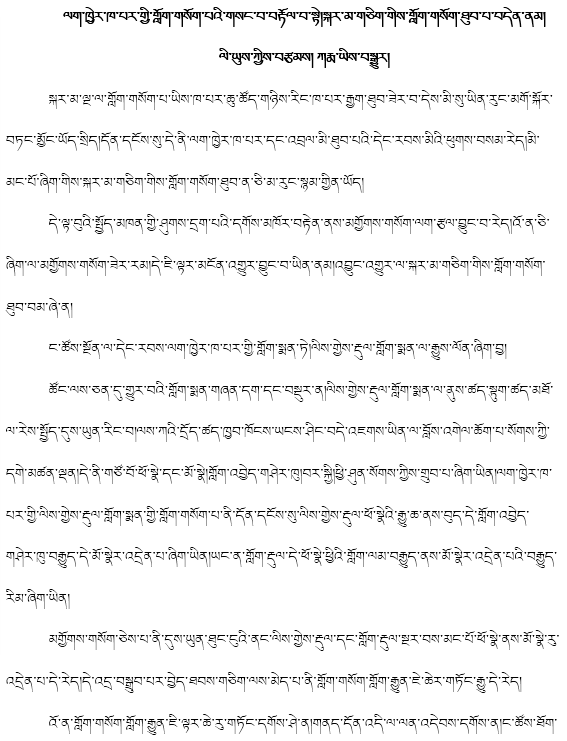 ལག་ཁྱེར་ཁ་པར་གྱི་གློག་གསོག་པའི་གསང་བ་བརྟོལ་བ་སྟེ།སྐར་མ་གཅིག་གིས་གློག་གསོག་ཐུབ་པ་བདེན་ནམ།
ལི་ཡུས་ཀྱིས་བརྩམས། ཀརྨ་ཡིས་བསྒྱུར།
སྐར་མ་ལྔ་ལ་གློག་གསོག་པ་ཡིས་ཁ་པར་ཆུ་ཚོད་གཉིས་རིང་ཁ་པར་རྒྱག་ཐུབ་ཟེར་བ་དེས་མི་སུ་ཡིན་རུང་མགོ་སྐོར་
བཏང་མྱོང་ཡོད་སྲིད།དོན་དངོས་སུ་དེ་ནི་ལག་ཁྱེར་ཁ་པར་དང་འབྲལ་མི་ཐུབ་པའི་དེང་རབས་མིའི་ཕུགས་བསམ་རེད།མི་
མང་པོ་ཞིག་གིས་སྐར་མ་གཅིག་གིས་གློག་གསོག་ཐུབ་ན་ཅི་མ་རུང་སྙམ་གྱིན་ཡོད།
དེ་ལྟ་བུའི་སྤྱོད་མཁན་གྱི་ཤུགས་དྲག་པའི་དགོས་མཁོར་བརྟེན་ནས་མགྱོགས་གསོག་ལག་རྩལ་བྱུང་བ་རེད།འོ་ན་ཅི་
ཞིག་ལ་མགྱོགས་གསོག་ཟེར་རམ།དེ་ཇི་ལྟར་མངོན་འགྱུར་བྱུང་བ་ཡིན་ནམ།འབྱུང་འགྱུར་ལ་སྐར་མ་གཅིག་གིས་གློག་གསོག་
ཐུབ་བམ་ཞེ་ན།
ང་ཚོས་སྔོན་ལ་དེང་རབས་ལག་ཁྱེར་ཁ་པར་གྱི་གློག་སྨན་ཏེ།ལིས་གྱེས་རྡུལ་གློག་སྨན་ལ་རྒྱུས་ལོན་ཞིག་བྱ།
ཚོང་ལས་ཅན་དུ་གྱུར་བའི་གློག་སྨན་གཞན་དག་དང་བསྡུར་ན།ལིས་གྱེས་རྡུལ་གློག་སྨན་ལ་ནུས་ཚད་སྟུག་ཚད་མཐོ་
ལ་རེས་སྤྱོད་དུས་ཡུན་རིང་བ།ལས་ཀའི་དྲོད་ཚད་ཁྱབ་ཁོངས་ཡངས་ཤིང་བདེ་འཇགས་ཡིན་ལ་བློས་འགེལ་ཆོག་པ་སོགས་ཀྱི་
དགེ་མཚན་ལྡན།དེ་ནི་གཙོ་བོ་ཕོ་སྣེ་དང་མོ་སྣེ།གློག་འབྱེད་གཤེར་ཁུ།བར་སྐྱི།ཕྱི་ཤུན་སོགས་ཀྱིས་གྲུབ་པ་ཞིག་ཡིན།ལག་ཁྱེར་ཁ་
པར་གྱི་ལིས་གྱེས་རྡུལ་གློག་སྨན་གྱི་གློག་གསོག་པ་ནི་དོན་དངོས་སུ་ལིས་གྱེས་རྡུལ་ཕོ་སྣེའི་རྒྱུ་ཆ་ནས་བུད་དེ་གློག་འབྱེད་
གཤེར་ཁུ་བརྒྱུད་དེ་མོ་སྣེར་འདྲེན་པ་ཞིག་ཡིན།ཡང་ན་གློག་རྡུལ་དེ་ཕོ་སྣེ་ཕྱིའི་གློག་ལམ་བརྒྱུད་ནས་མོ་སྣེར་འདྲེན་པའི་བརྒྱུད་
རིམ་ཞིག་ཡིན།
མགྱོགས་གསོག་ཅེས་པ་ནི་དུས་ཡུན་ཐུང་ངུའི་ནང་ལིས་གྱེས་རྡུལ་དང་གློག་རྡུལ་སྔར་བས་མང་པོ་ཕོ་སྣེ་ནས་མོ་སྣེ་རུ་
འདྲེན་པ་དེ་རེད།དེ་འདྲ་བསྒྲུབ་པར་བྱེད་ཐབས་གཅིག་ལས་མེད་པ་ནི་གློག་གསོག་གློག་རྒྱུན་ཇེ་ཆེར་གཏོང་རྒྱུ་དེ་རེད།
འོ་ན་གློག་གསོག་གློག་རྒྱུན་ཇི་ལྟར་ཆེ་རུ་གཏོང་དགོས་ཤེ་ན།གནད་དོན་འདི་ལ་ལན་འདེབས་དགོས་ན།ང་ཚོས་ཐོག་